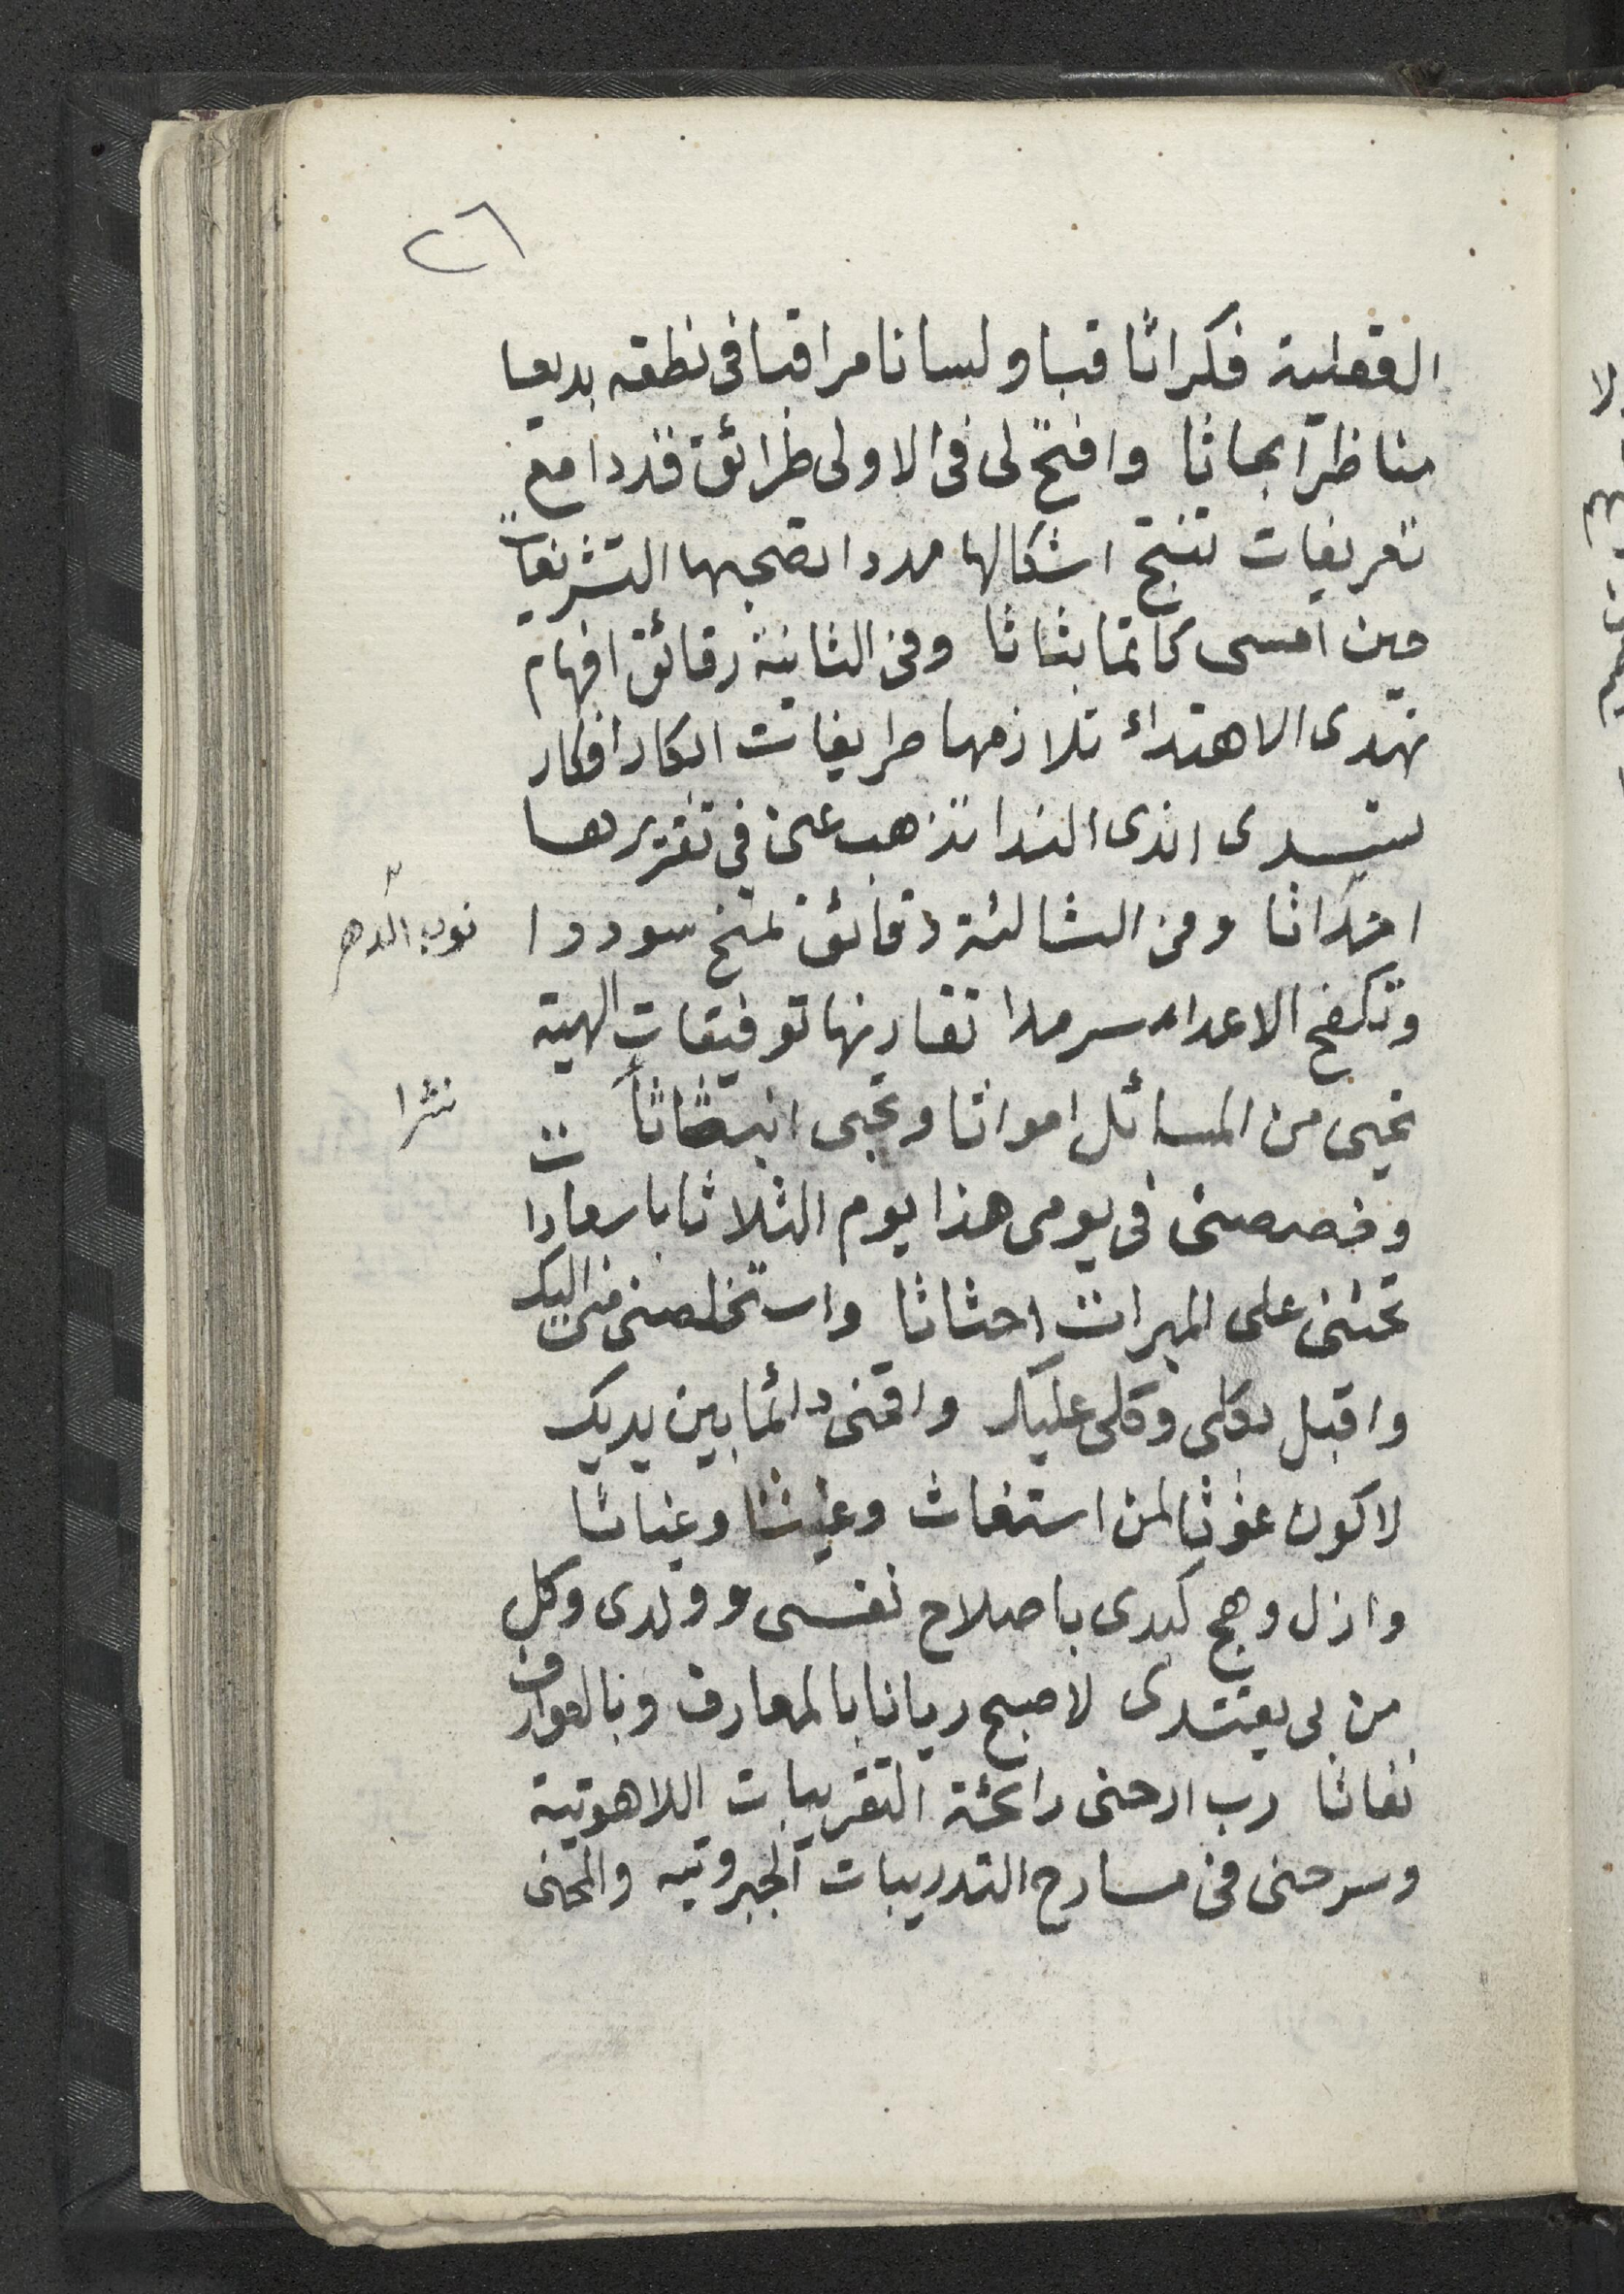 ٢٦
العقلية فكرا ثاقبا ولسانا مراقبا في نطقه بديعا
مناظرا بحاثا وافتح لى فى الاولى طرائق قددا مع
تعريفات تنتج اشكالها مددا تصحبها التشريفات
حين امسى كاتما بثاثا وفى الثانية رقائق افهام
تهدى الاهتداء تلازمها طريفات ابكار افكار
ستسدى اندى الندا تذهب عنى فى تقريرها
احداثا وفى الثالثة دقائق تمنح سوددا
نوب الدهر
وتكفح الاعداء سرمدا تقارنها توفيقات الهية
تحيى من المسائل امواتا وتجى
نثرا
وخصصنى فى يومى هذا يوم الثلاثا باسعادات
تحثنى على المبرات احثاثا واستخلصنى منى اليك
واقبل بكلى وكلى عليك واقمنى دائما بين يديك
لاكون غوثا لمن استغاث وغيثا وغياثا
وازل وهج كبدى باصلاح نفسى وولدى وكل
من بى يقتدى لاصبح ريانا بالمعارف وبالعوارف
نفاثا رب ارحنى رائحة التقريبات اللاهوتية
وسرحنى فى مسارح التدريبات الجبروتيه والمحنى